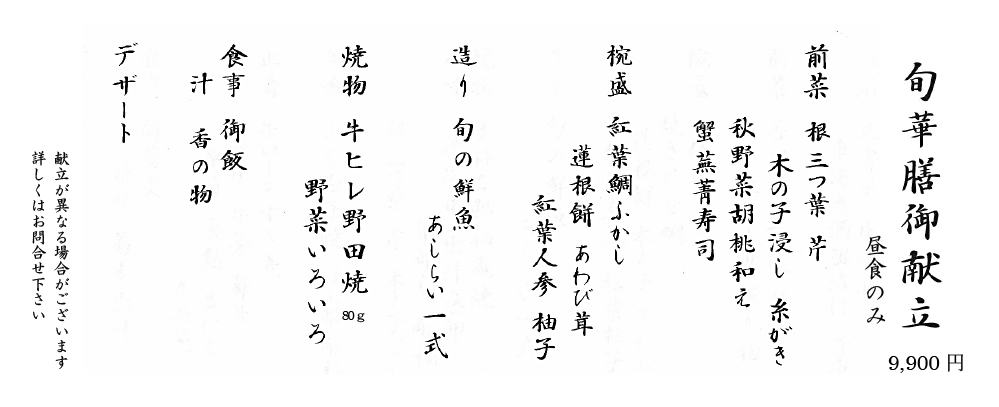 旬華膳御献立
昼食のみ
9,900 円
前菜 根三つ葉 芹
木の子浸し 糸がき
秋野菜胡桃和え
蟹蕪菁寿司
椀盛 紅葉鯛ふかし
蓮根餅 あわび茸
紅葉人参 柚子
造り 旬の鮮魚
あしらい一式
焼物 牛ヒレ野田焼 80g
野菜いろいろ
食事 御飯
汁 香の物
デザート
献立が異なる場合がございます
詳しくはお問合せ下さい